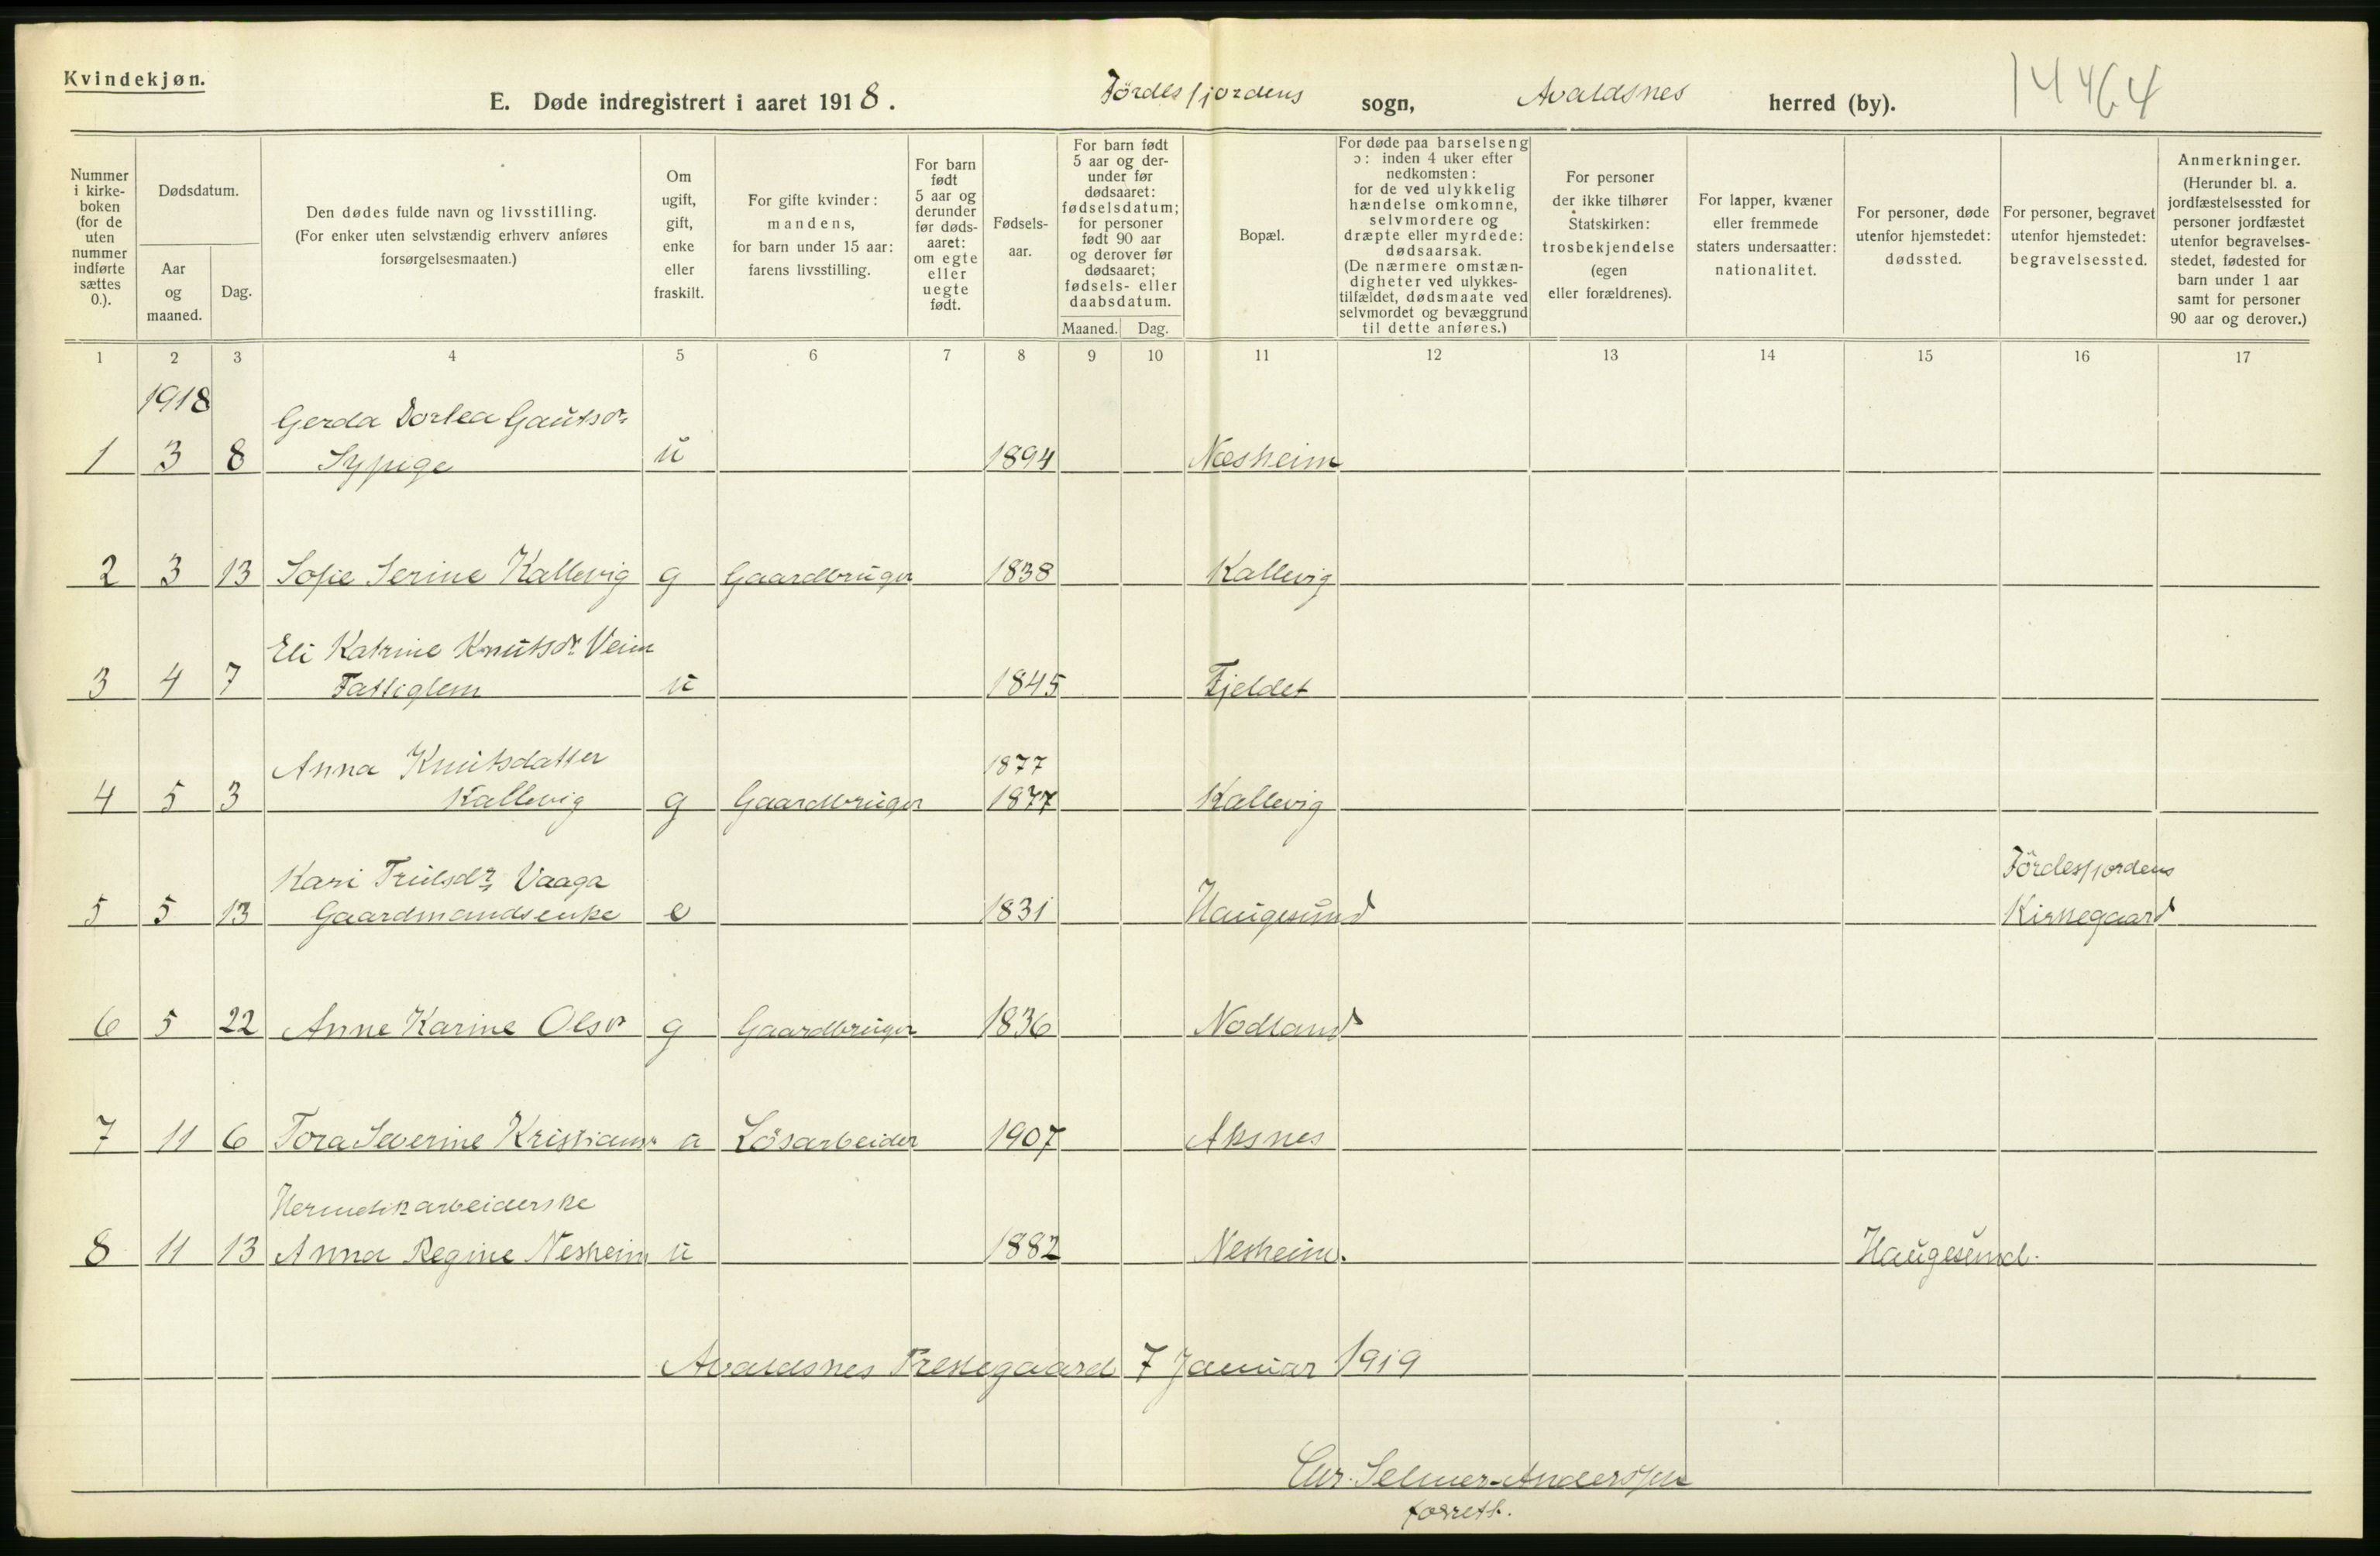 Kvindekjøn.
E. Døde indregistrert i aaret 1918. Fördesfjordens sogn, Avaldsnes herred (by). 14464
Nummer i kirke-boken (for de uten nummer indførte sættes 0.).
Dødsdatum.
Aar og maaned.
Dag.
Den dødes fulde navn og livsstilling.
(For enker uten selvstændig erhverv anføres
forsørgelsesmaaten.)
Om
ugift,
gift,
enke
eller
fraskilt.
For gifte kvinder:
mandens,
for barn under 15 aar:
farens livsstilling.
For barn
født
5 aar og
derunder
før døds-
aaret:
om egte
eller
uegte
født.
Fødsels-
aar.
For barn født
5 aar og der-
under før
dødsaaret:
fødselsdatum;
for personer
født 90 aar
og derover før
dødsaaret;
fødsels- eller
daabsdatum.
Maaned. Dag.
Bopæl.
For døde paa barselseng
ɔ: inden 4 uker efter
nedkomsten:
for de ved ulykkelig
hændelse omkomne,
selvmordere og
dræpte eller myrdede:
dødsaarsak.
(De nærmere omstæn-
digheter ved ulykkes-
tilfældet, dødsmaate ved
selvmordet og bevæggrund
til dette anføres.)
For personer
der ikke tilhører
Statskirken:
trosbekjendelse
(egen
eller forældrenes).
For lapper, kvæner
eller fremmede
staters undersaatter:
nationalitet.
For personer, døde
utenfor hjemstedet:
dødssted.
For personer, begravet
utenfor hjemstedet:
begravelsessted.
Anmerkninger.
(Herunder bl. a.
jordfæstelsessted for
personer jordfæstet
utenfor begravelses-
stedet, fødested for
barn under 1 aar
samt for personer
90 aar og derover.)
1 2 3 4 5 6 7 8 9 10 11 12 13 14 15 16 17
1918
Gerda Dortea Gautsdr
1 3 8 Sypige ú 1894 Næsheim
2 3 13 Sofie Serine Kallevig g Gaardbruger 1838 Kallevig
Eli Katrine Knutsdr. Veim
3 4 7 Fattiglem u 1845 Fjeldet
Anna Knutsdatter 1877
4 5 3 Kallevig g Gaardbruger 1877 Kallevig
Kari Trulsdr, Vaaga Fördesfjordens
5 5 13 Gaardmandsenke e 1831 Haugesund Kirkegaard
6 5 22 Anne Karine Olsdr g Gaardbruger 1836 Nodland
7 11 6 Tora Severine Kristiansr u Lösarbeider 1907 Aksnes
Hermetikarbeiderske
8 11 13 Anna Regine Nesheim u 1882 Nesheim. Haugesund.
Avaldsnes Prestegaard 7 Januar 1919
Chr. Selmer-Anderssen
forrett.